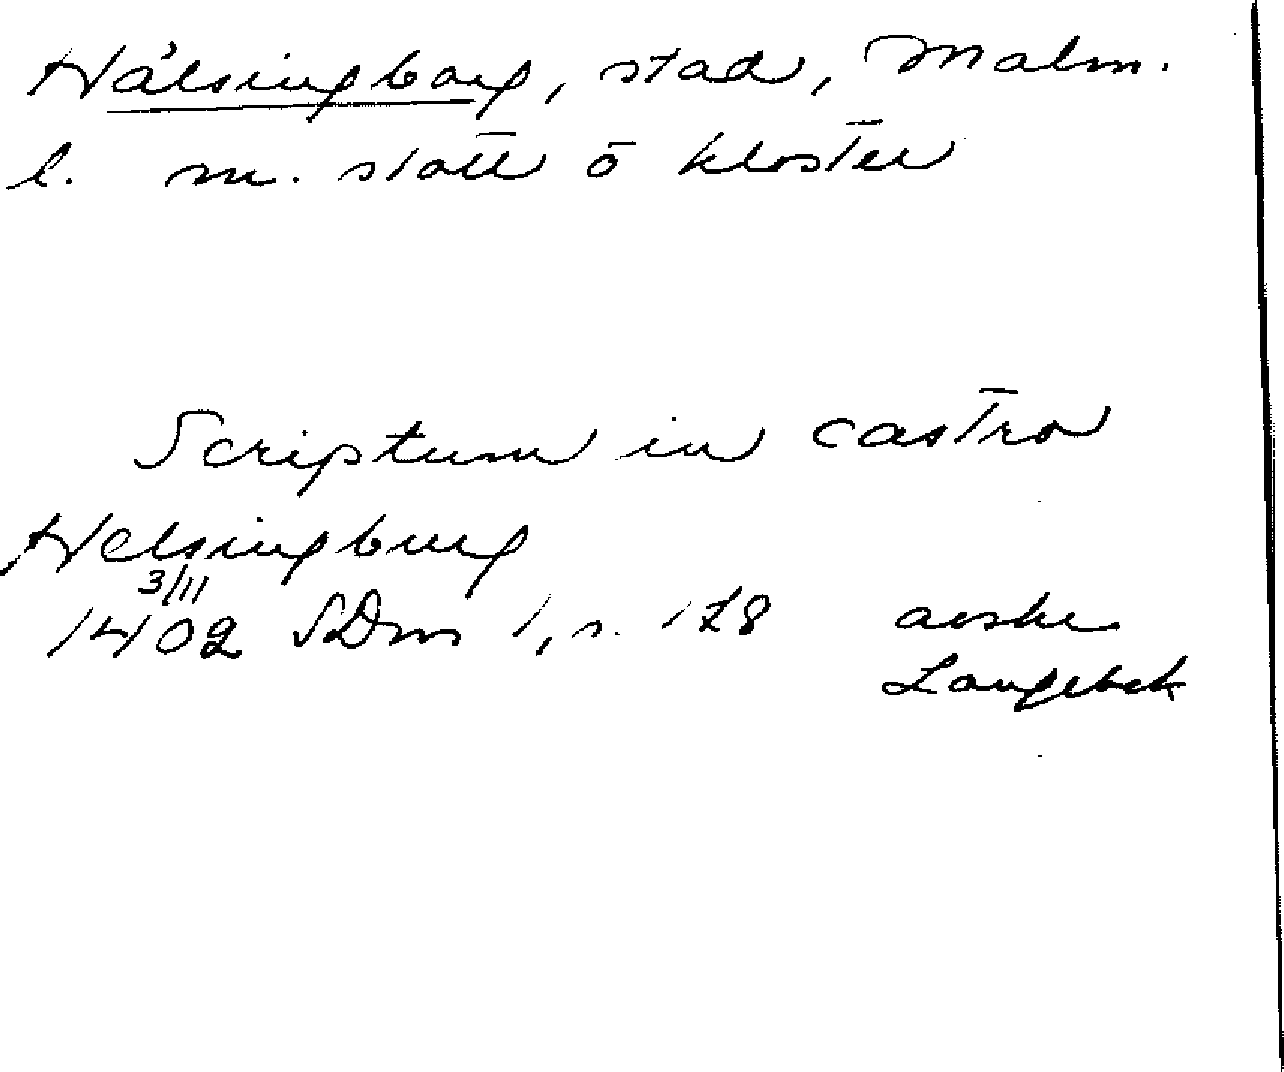 Hälsingborg, stad, Malm.
l. m. slott o kloster
Scriptum in castro
Helsingburg
3/11
1402 SDns 1, s. 178 avskr
Langebek